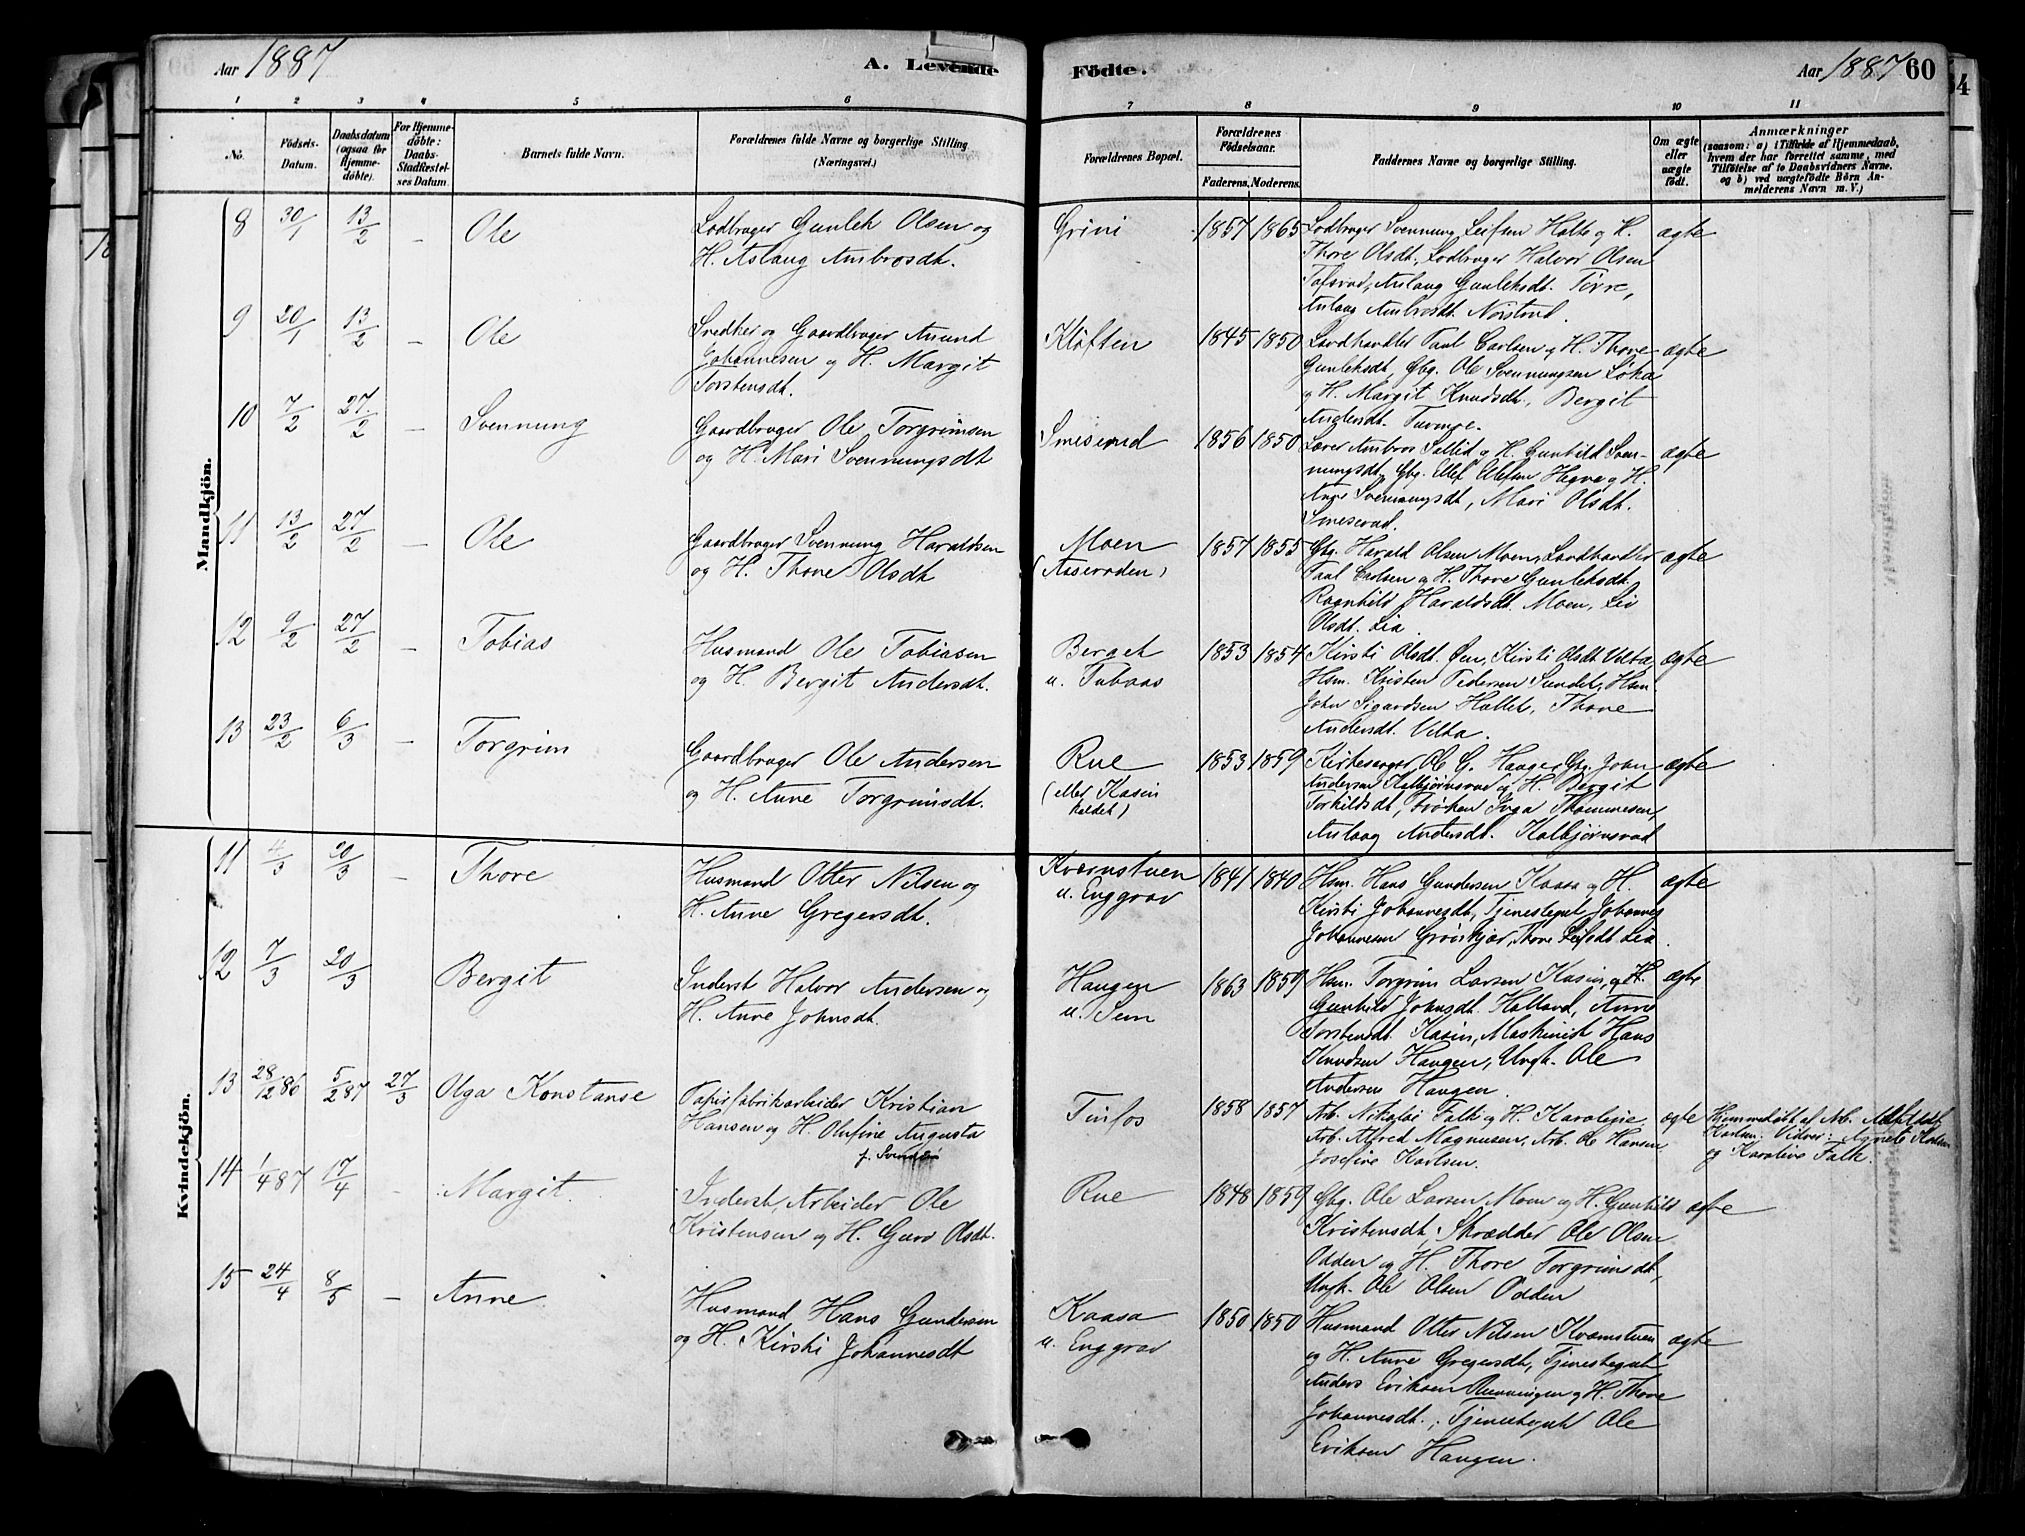 Aar 1887
A. Levende
Födte.
Aar 1887 60
1 2 3 4 5 6 7 8 9 10 11
No.
Födsels-
Datum.
Daabsdatum
(ogsaa for
Hjemme-
döbte).
For Hjemme-
döbte:
Daabs-
Stadfæstel-
ses Datum.
Barnets fulde Navn.
Forældrenes fulde Navne og borgerlige Stilling
(Næringsvei.)
Forældrenes Bopæl.
Forældrenes
Födselsaar.
Faderens. Moderens.
Faddernes Navne og borgerlige Stilling.
Om ægte
eller
uægte
födt.
Anmærkninger
(saasom: a) i Tilfælde af Hjemmedaab,
hvem der har forrettet samme, med
Tilföielse af to Daabsvidners Navne,
og b) ved uægtefödte Börn An-
melderens Navn m. V.)
Mandkjön.
8 30/1 13/2 - Ole
Lodbruger Gunlek Olsen og
H. Aslaug Ambrosdt.
Grini
1857 1865
Lodbruger Svennung Leifsen Holte og H.
Thore Olsdt., Lodbruger Halvor Olsen
Aslaug Gunleksdt.
Aslaug Ambrosdt.
ægte
9 20/1 13/2 - Ole
Snedker og Gaardbruger Amund
Johannesen og H. Margit
Torstensdt.
Kløften
1845 1850
Landhandler Paul Carlsen og H. Thore
Gunleksdt, Gbg. Ole Svennungsen
og H. Margit Knudsdt., Bergit
Andersdt.
ægte
10 7/2 27/2 - Svennung
Gaardbruger Ole Torgrimsen
og H. Mari Svennungsdt
Smesrud
1856 1850
Lærer Ambros H. Gunhild Sven-
nungsdt, Gbg. Ellef Ellefsen og H.
Anne Svennungsdt, Mari Olsdt.
Smesrud.
ægte
11 13/2 27/2 - Ole
Gaardbruger Svennung Haraldsen
og H. Thone Olsdt
Moen
1857 1855
Gbg. Harald Olsen Moen, Landhandler
Paul Carlsen og H. Thore Gunleksdt.
Ragnhild Haraldsdt. Moen, Liv
Olsdt. Lia.
ægte
12 9/2 27/2 - Tobias
Husmand Ole Tobiasen
og H. Bergit Andersdt.
Berget
u. Tubaas
1853 1854
Kirsti Olsdt. Øen, Kirsti Olsdt Velta,
Hsm. Kristen Pedersen Sundet, Hsm.
John Sigurdsen Hallet, Thone
Andersdt. Velta.
ægte
13 23/2 6/3 - Torgrim
Gaardbruger Ole Andersen
og H. Anne Torgrimsdt.
Rue
(eller Kasin
kaldet)
1853 1859
Kirkesanger Ole G. Haugen, Gbg. John
Andersen Kolbjørnsrud og H. Bergit
Torkildsdt, Frøken Inga Thommesen,
Aslaug Andersdt. Kolbjørnsrud
ægte
Kvindekjön.
11 4/3 20/3 - Thore
Husmand Otter Nilsen og
H. Anne Gregersdt.
Kværnstuen
u. Enggrav
1841 1840
Hsm. Hans Gundersen Kaasa og H.
Kirsti Johannesdt, Tjenestegut Johannes
Johannesen Grøiskjær, Thore Leifsdt Lia.
ægte
12 7/3 20/3 Bergit
Inderst Halvor Andersen og
H. Anne Johnsdt.
Haugen
u. Sem
1863 1859
Hsm. Torgrim Larsen Kasin, og H.
Gunhild Johnsdt. Holland, Anne
Torstensdt. Kasin, Maskinist Hans
Knudsen Haugen, Ungk. Ole
Andersen Haugen.
ægte
13 28/12 86 5/2 87 27/3 Olga Konstanse
Papirfabrikarbeider Kristian
Hansen og H. Olufine Augusta
f. Svendsen
Tinfos
1858 1857
Arb. Nikolai Falk og H. Karolине
Arb. Alfred Magnusen, Arb. Ole Hansen,
Josefine Karlsen.
ægte
Hjemmedøbt af Arb.
Karlsen. Vidner: Agnete Karlsen
og Karoline Falk.
14 1/4 87 17/4 - Margit.
Inderst, Arbeider Ole
Kristensen og H. Guro Olsdt.
Rue
1848 1859
Gbg. Ole Larsen Moen og H. Gunhild
Kristensdt, Skrædder Ole Olsen
Odden og H. Thore Torgrimsdt,
Ungk. Ole Olsen Odden
ægte
15 24/4 8/5 - Anne
Husmand Hans Gundersen
og H. Kirsti Johannesdt
Kaasa
u. Enggrav
1850 1850
Husmand Otter Nilsen Kværnstuen
og H. Anne Gregersdt, Tjenestegut
Anders Eriksen Rønningen og H. Thore
Johannesdt., Tjenestegut Ole
Eriksen Haugen.
ægte